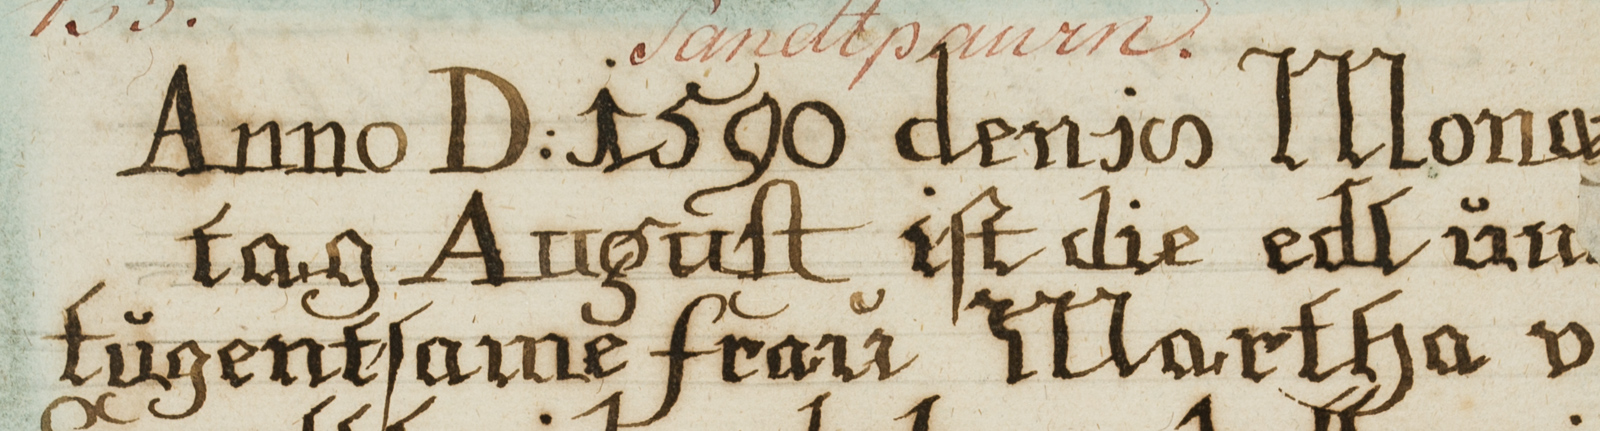 133.
Sandtpaurn.
Anno D: 1590 den 10 Mona
tag August ist die edl ŭn
tŭgentsame fraŭ Martha v